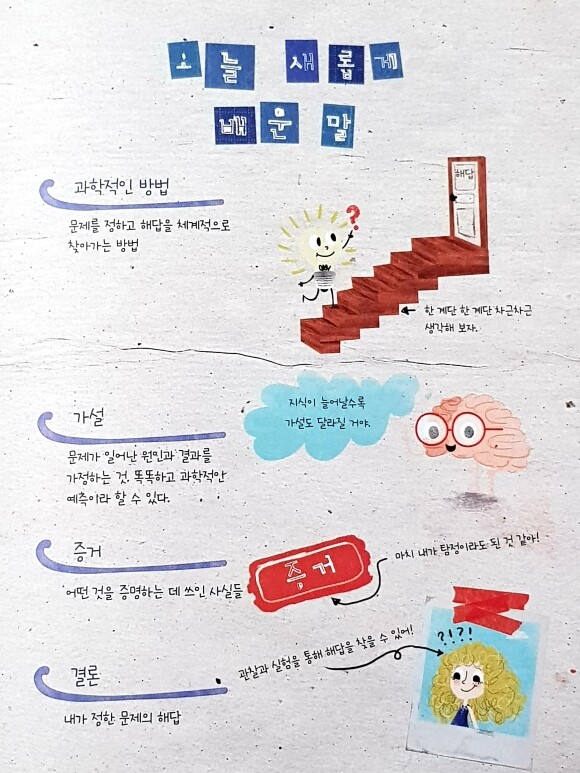 오늘 새롭게
배운 말
과학적인 방법
문제를 정하고 해답을 체계적으로
찾아가는 방법
해답
?
한 계단 한 계단 차근차근
생각해 보자.
지식이 늘어날수록
가설도 달라질 거야.
가설
문제가 일어난 원인과 결과를
가정하는 것. 똑똑하고 과학적인
예측이라 할 수 있다.
증거
어떤 것을 증명하는 데 쓰인 사실들
증거
마치 내가 탐정이라도 된 것 같아!
관찰과 실험을 통해 해답을 찾을 수 있어!
?!?!
결론
내가 정한 문제의 해답